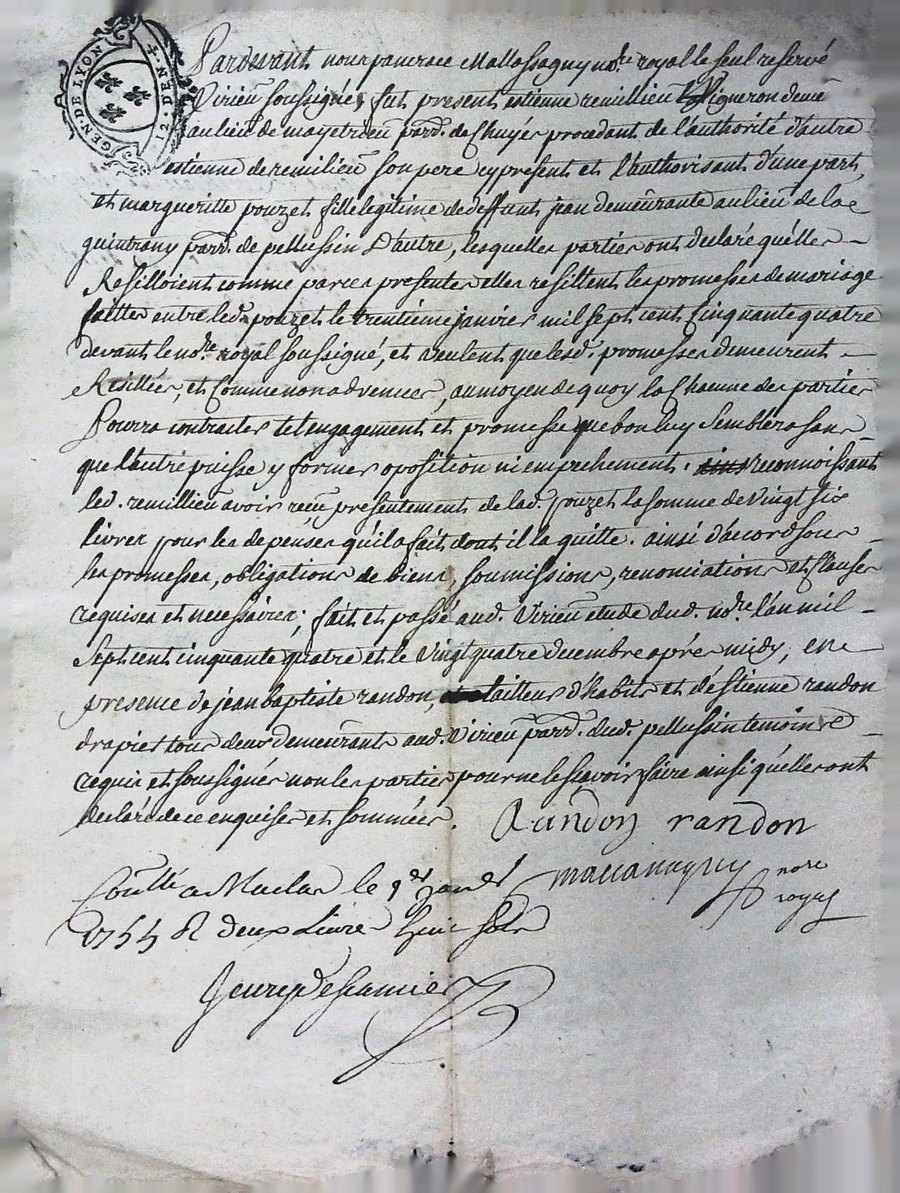 GEN. DE LYON 12. DEN. 4
Pardevant nous pancrace Mattassagny no.re royal le seul reservé
Virieu soussigné, fut present estienne remillieu Vigneron deme
au lieu de mayetrieu parr. de Chuyer procedant de l'authorité d'autre
estienne de remilieu son pere cy present et l'authorisant d'une part,
et margueritte pouzet fille legitime de deffunt jean demeurante au lieu de la
guintrany parr. de pellussin d'autre, lesquelles parties ont declaré qu'elles
Resilloient comme par ces presentes elles resillent les promesses de mariage
faittes entre led. pouzet le trentieme janvier mil sept cent cinquante quatre
devant le no.re royal soussigné, et veulent que lesd. promesses demeurent
Resillées, et comme non advenues, au moyen de quoy la Chacune des parties
Pourra contracter tel engagement et promesse que bon luy semblera sans
que l'autre puisse y former oposition ni empechement, reconnoissant
led. remillieu avoir reçu presentement de lad. pouzet la somme de vingt six
livres pour les depenses qu'il a fait dont il la quitte. ainsi d'acord sous
les promesses, obligations de biens, soumissions, renonciations et Clauses
requises et necessaires; fait et passé aud. Virieu etude dud. no.re l'an mil
sept cent cinquante quatre et le vingt quatre decembre apres midy, en
presence de jean baptiste randon, tailleur d'habits et d'estienne randon
drapier tous deux demeurants aud. Virieu parr. dud. pellussin temoins
requis et soussignés non les parties pour ne le scavoir faire ainsi qu'elles ont
declaré de ce enquises et sommées. Randon randon
Conllé a Maclas le 9 janer
1755 R deux Livres huit sols
no.re
royal